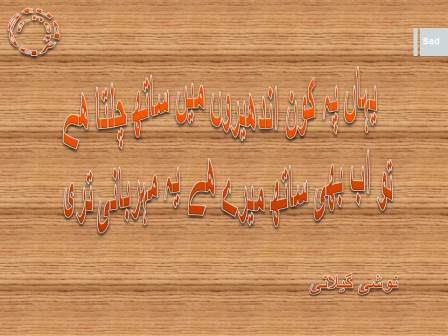 Sad
یہاں پہ کون اندھیروں میں ساتھ چلتا ہے
تو اب بھی ساتھ میرے ہے یہ مہربانی تری
نوشی گیلانی